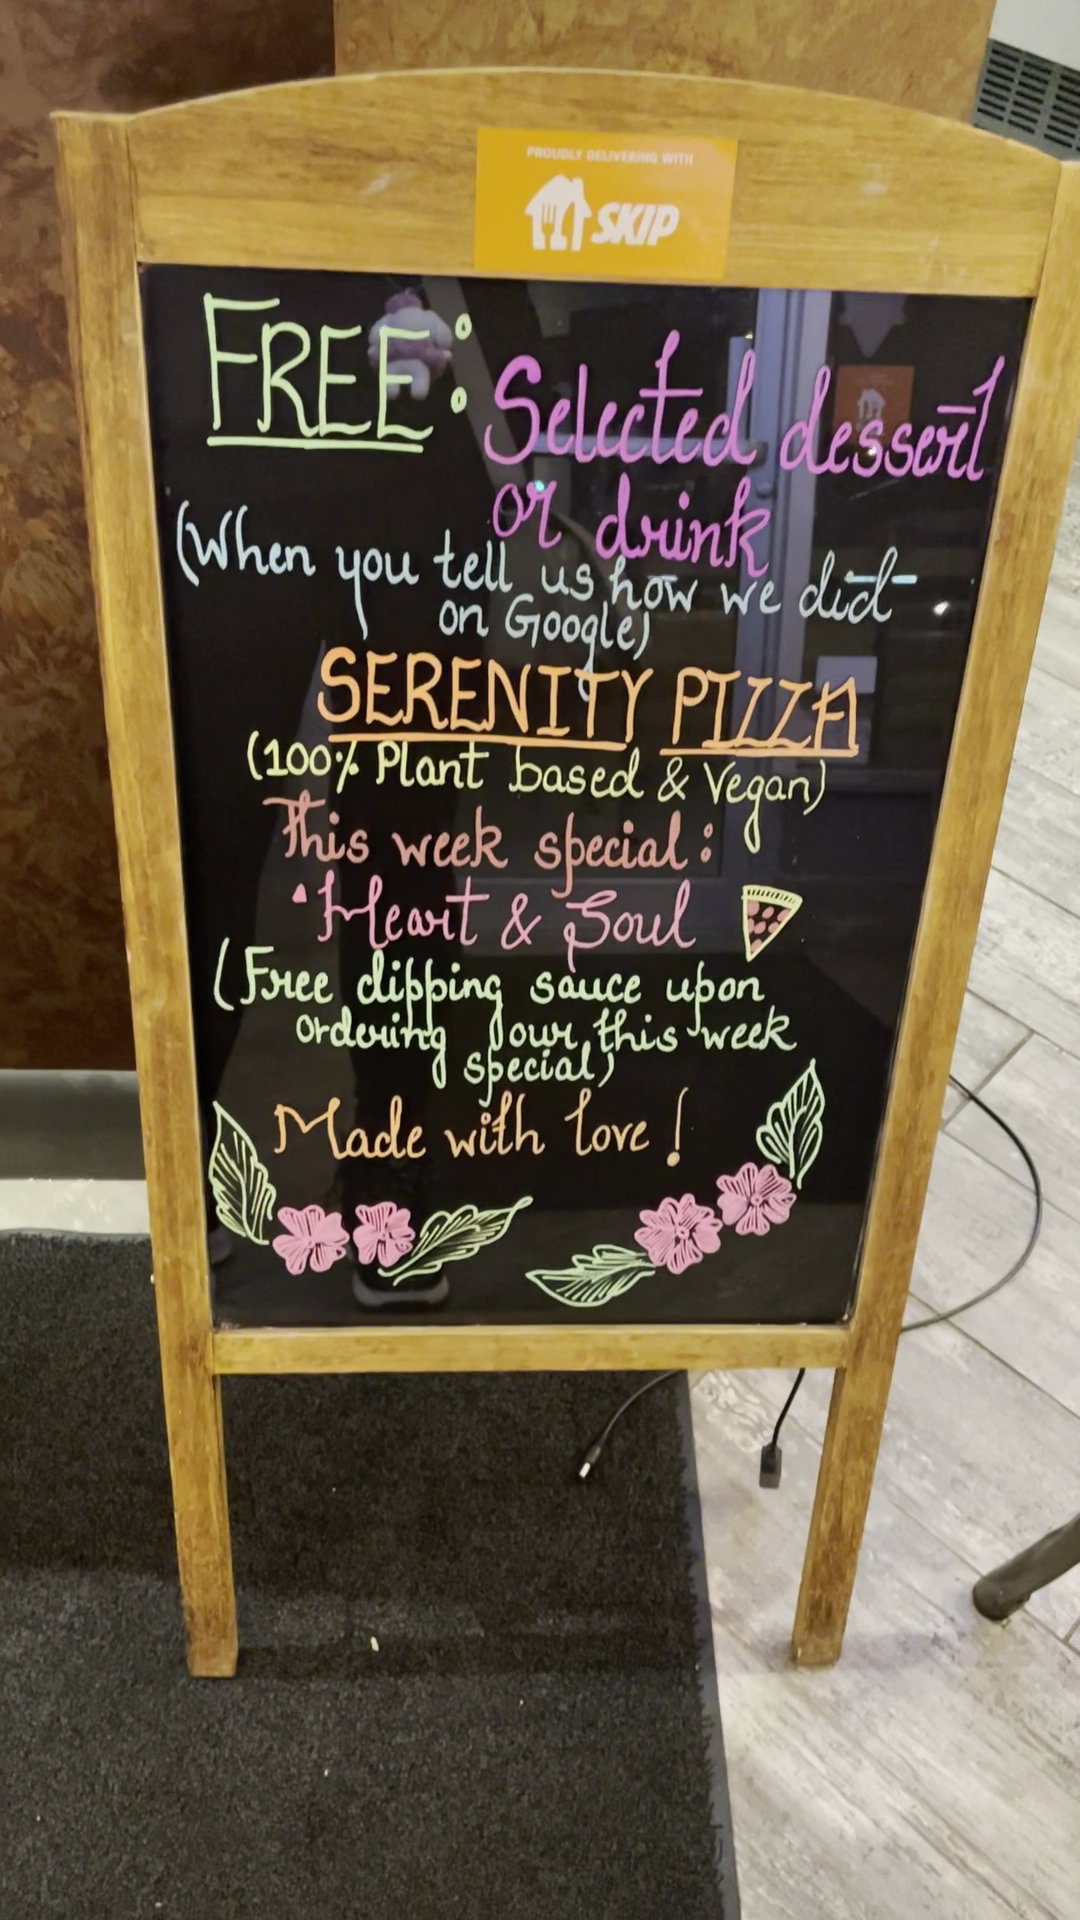 PROUDLY DELIVERING WITH
SKIP
FREE: Selected dessert
or drink
(When you tell us how we did
on Google)
SERENITY PIZZA
(100% Plant based & Vegan)
This week special:
Heart & Soul
(Free dipping sauce upon
ordering our this week
special)
Made with love!